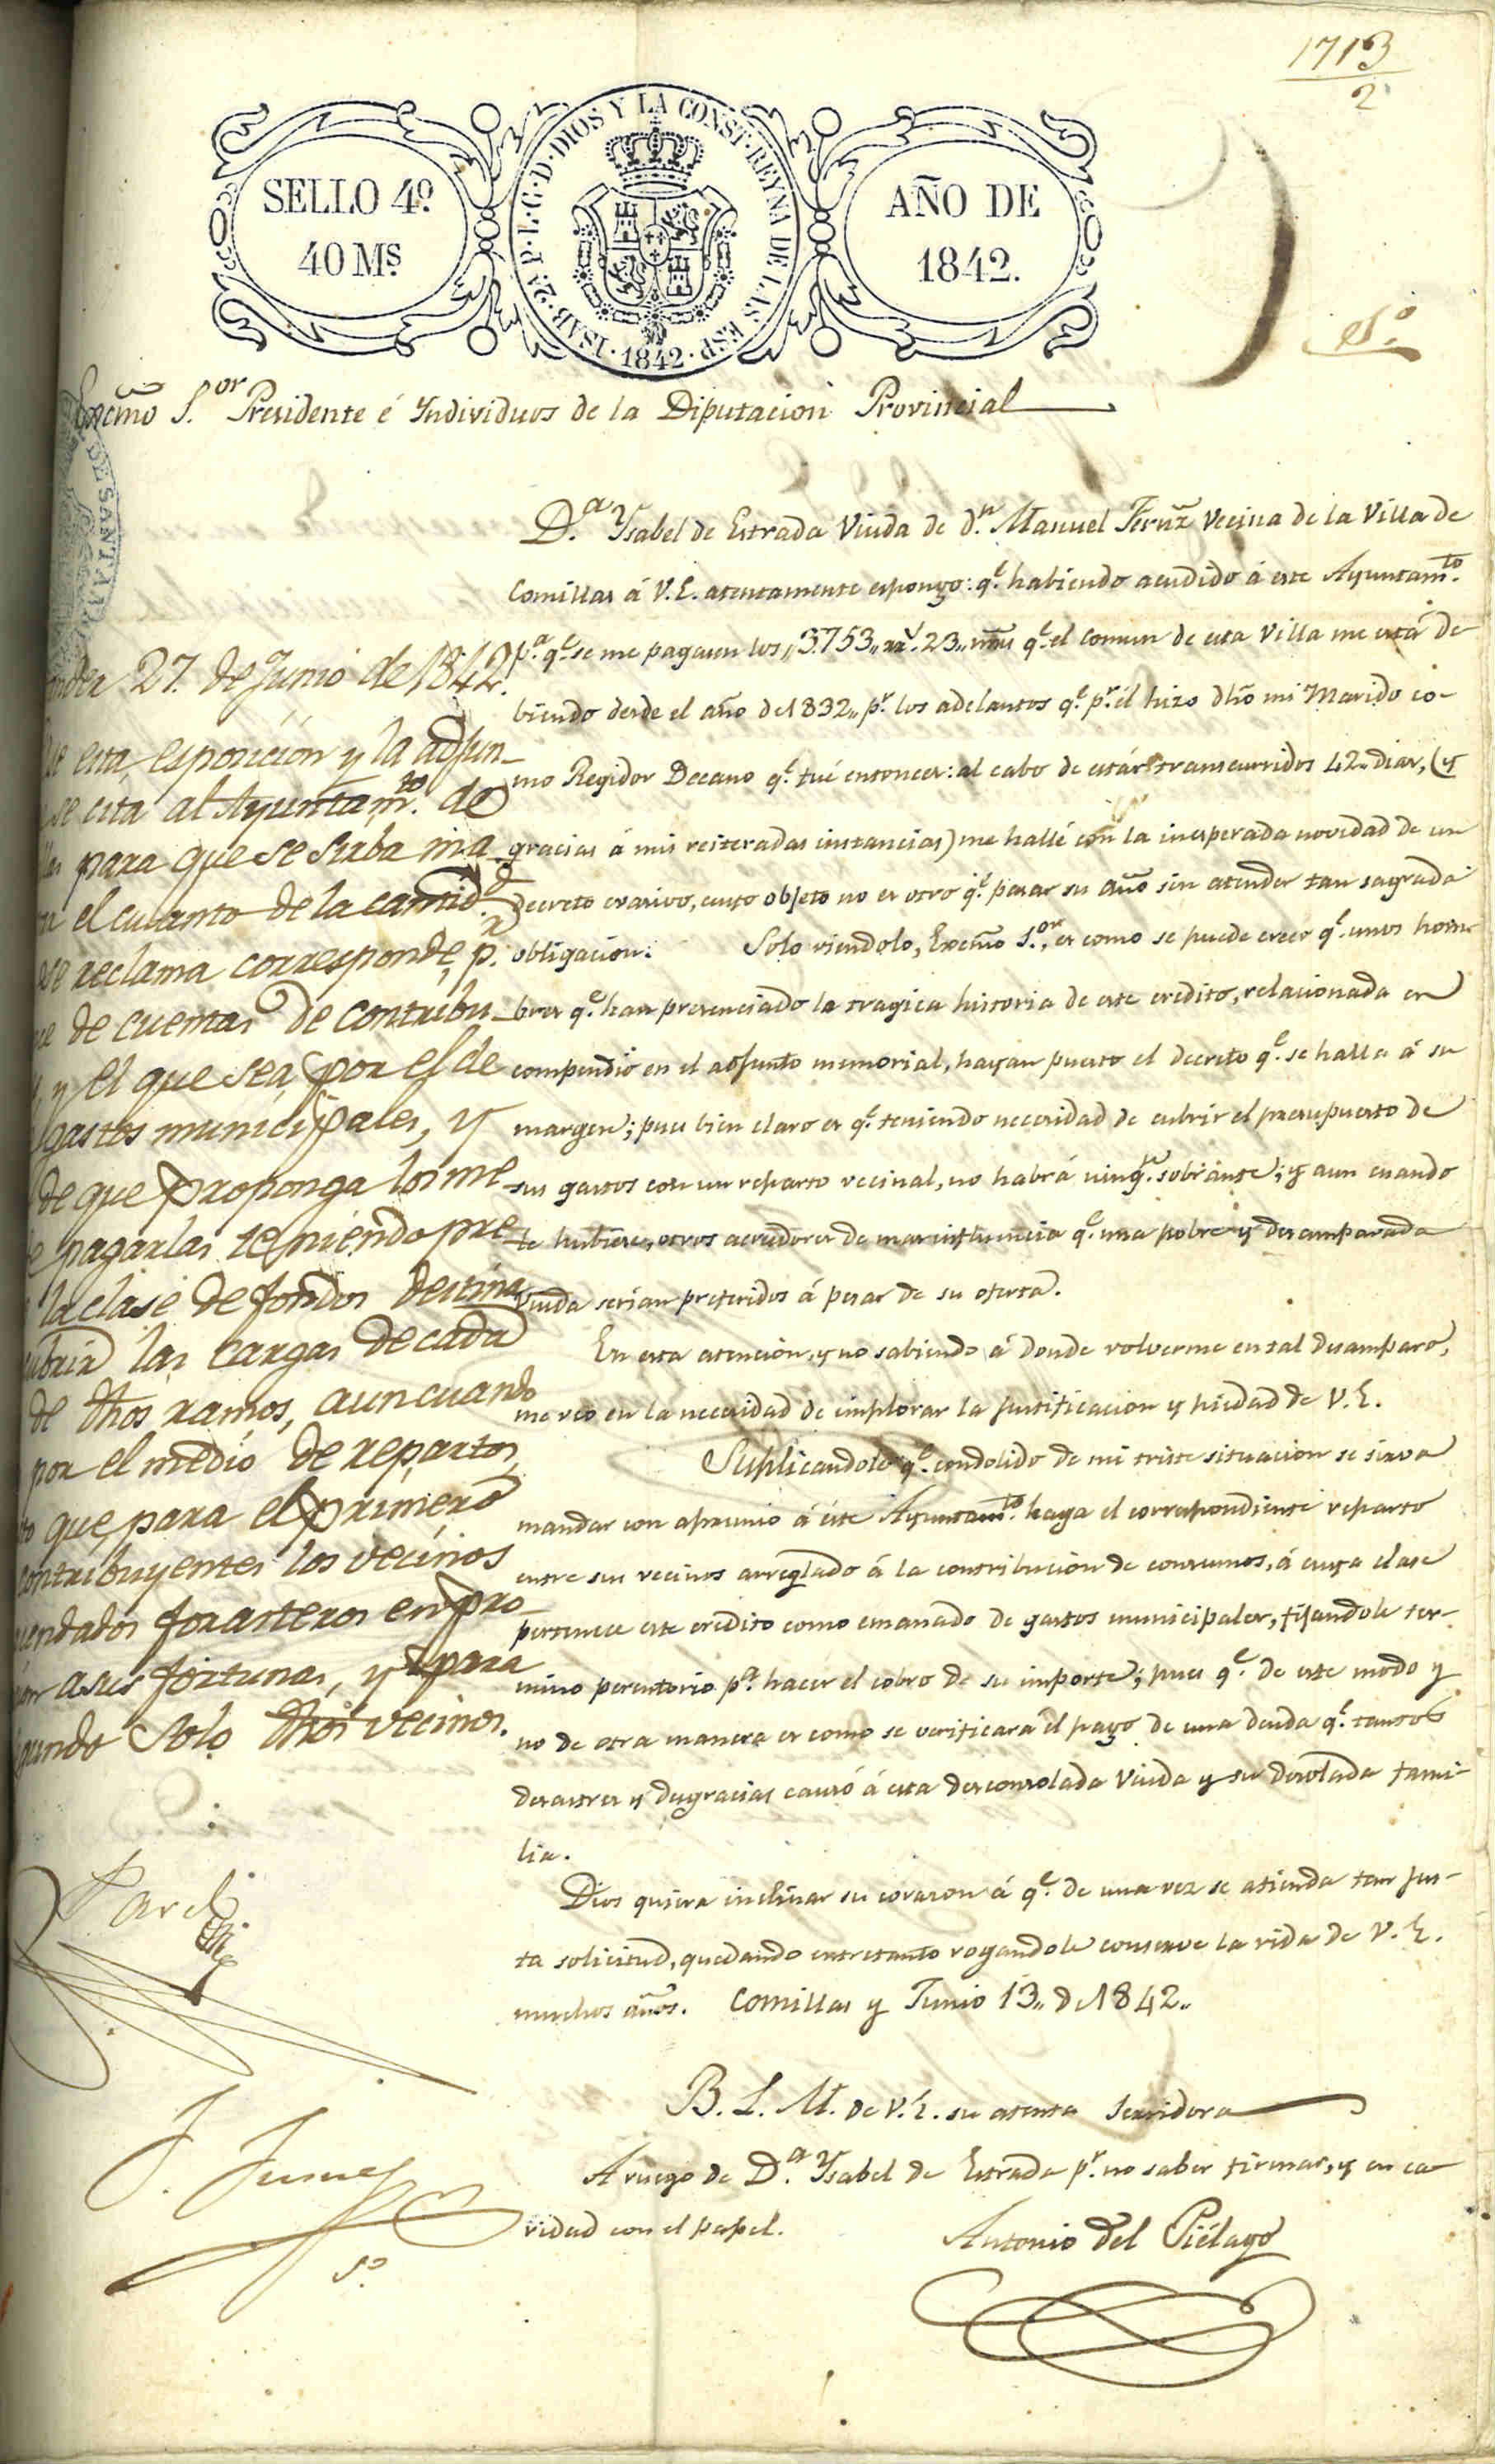 1713
2
SELLO 4º.
40 Mˢ.
ISAB. 2ª P. L. G. D. DIOS Y LA CONST. REYNA DE LAS ESP.
1842
AÑO DE
1842.
Excmo S.ᵒʳ Presidente é Individuos de la Diputacion Provincial
DE SANTA
D.ª Ysabel de Estrada Viuda de d.ⁿ Manuel Fernz Vecina de la Villa de
Comillas á V.E. atentamente espongo: q.ᵉ habiendo acudido á este Ayuntamᵗᵒ.
p.ª q.ᵉ se me paguen los,, 3.753,, rrˢ. 23,, mrs q.ᵉ el comun de esta Villa me está de-
biendo desde el año de 1832,, p.ʳ los adelantos q.ᵉ p.ʳ él hizo dho mi Marido co-
mo Regidor Decano q.ᵉ fué entonces: al cabo de estár transcurridos 42,, dias, (y
gracias á mis reiteradas instancias) me hallé con la inesperada novedad de un
Decreto evasivo, cuyo objeto no es otro q.ᵉ pasar su año sin atender tan sagrada
obligacion. Solo viendolo, Excmo S.ᵒʳ, es como se puede creer q.ᵉ unos hom-
bres q.ᵉ han presenciado la tragica historia de este credito, relacionada en
compendio en el adjunto memorial, hayan puesto el decreto q.ᵉ se halla á su
margen; pues bien claro es q.ᵉ teniendo necesidad de cubrir el presupuesto de
sus gastos con un reparto vecinal, no habrá ning.ⁿ sobrante; y aun cuando
le hubiere, otros acreedores de mas influencia q.ᵉ una pobre y desamparada
Viuda serian preferidos á pesar de su oferta.
En esta atencion, y no sabiendo á donde volverme en tal desamparo,
me veo en la necesidad de implorar la justificacion y piedad de V.E.
Suplicandole q.ᵉ condolido de mi triste situacion se sirva
mandar con apremio á éste Ayuntamᵗᵒ. haga el correspondiente reparto
entre sus vecinos arreglado á la contribucion de consumos, á cuya clase
pertenece este credito como emanado de gastos municipales, fijandole ter-
mino perentorio p.ª hacer el cobro de su importe; pues q.ᵉ de este modo y
no de otra manera es como se verificará el pago de una deuda q.ᵉ tantos
desastres y desgracias causó á esta desconsolada Viuda y su desolada fami-
lia.
Dios quiera inclinar su corazon á q.ᵉ de una vez se atienda tan jus-
ta solicitud, quedando entretanto rogandole conserve la vida de V.E.
muchos años. Comillas y Junio 13,, de 1842,,
B. L. M. de V.E. su atenta Servidora
A ruego de D.ª Ysabel de Estrada p.ʳ no saber firmar, y en ca-
ridad con el papel.
Antonio del Piélago
nder 27. de Junio de 1842.
se esta esposicion y la adjun-
se cita al Ayuntamᵗᵒ. de
llas para que se sirba ma-
el cuanto de la cantid.ᵈ
se reclama corresponde p.ʳ
de cuentas de contribu-
y el que sea por el de
gastos municipales, y
de que proponga los me-
pagarlas teniendo pre-
la clase de fondos destina
cubrir las cargas de cada
de dhos ramos, aun cuando
por el medio de repartos,
to que para el primero
contribuyentes los vecinos
cendados forasteros en pro-
on a sus fortunas, y para
gundo solo dhos vecinos.